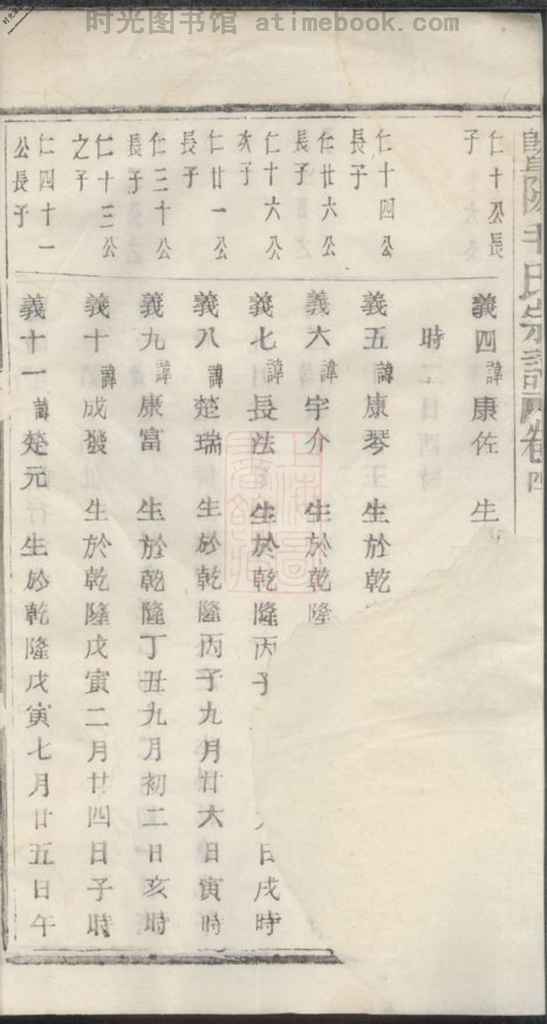 时光图书馆 atimebook.com
氏宗譜卷四
仁十公長
子
義四諱康佐 生
時
仁十四公
長子
義五諱康琴 生於乾
仁廿六公
長子
義六諱宇介 生於乾隆
仁十六公
次子
義七諱長法 生於乾隆丙子 日戌時
仁廿一公
長子
義八諱楚瑞 生於乾隆丙子九月廿六日寅時
仁三十公
長子
義九諱康富 生於乾隆丁丑九月初二日亥時
仁十三公
之子
義十諱成發 生於乾隆戊寅二月廿四日子時
仁四十一
公長子
義十一諱楚元 生於乾隆戊寅七月廿五日午